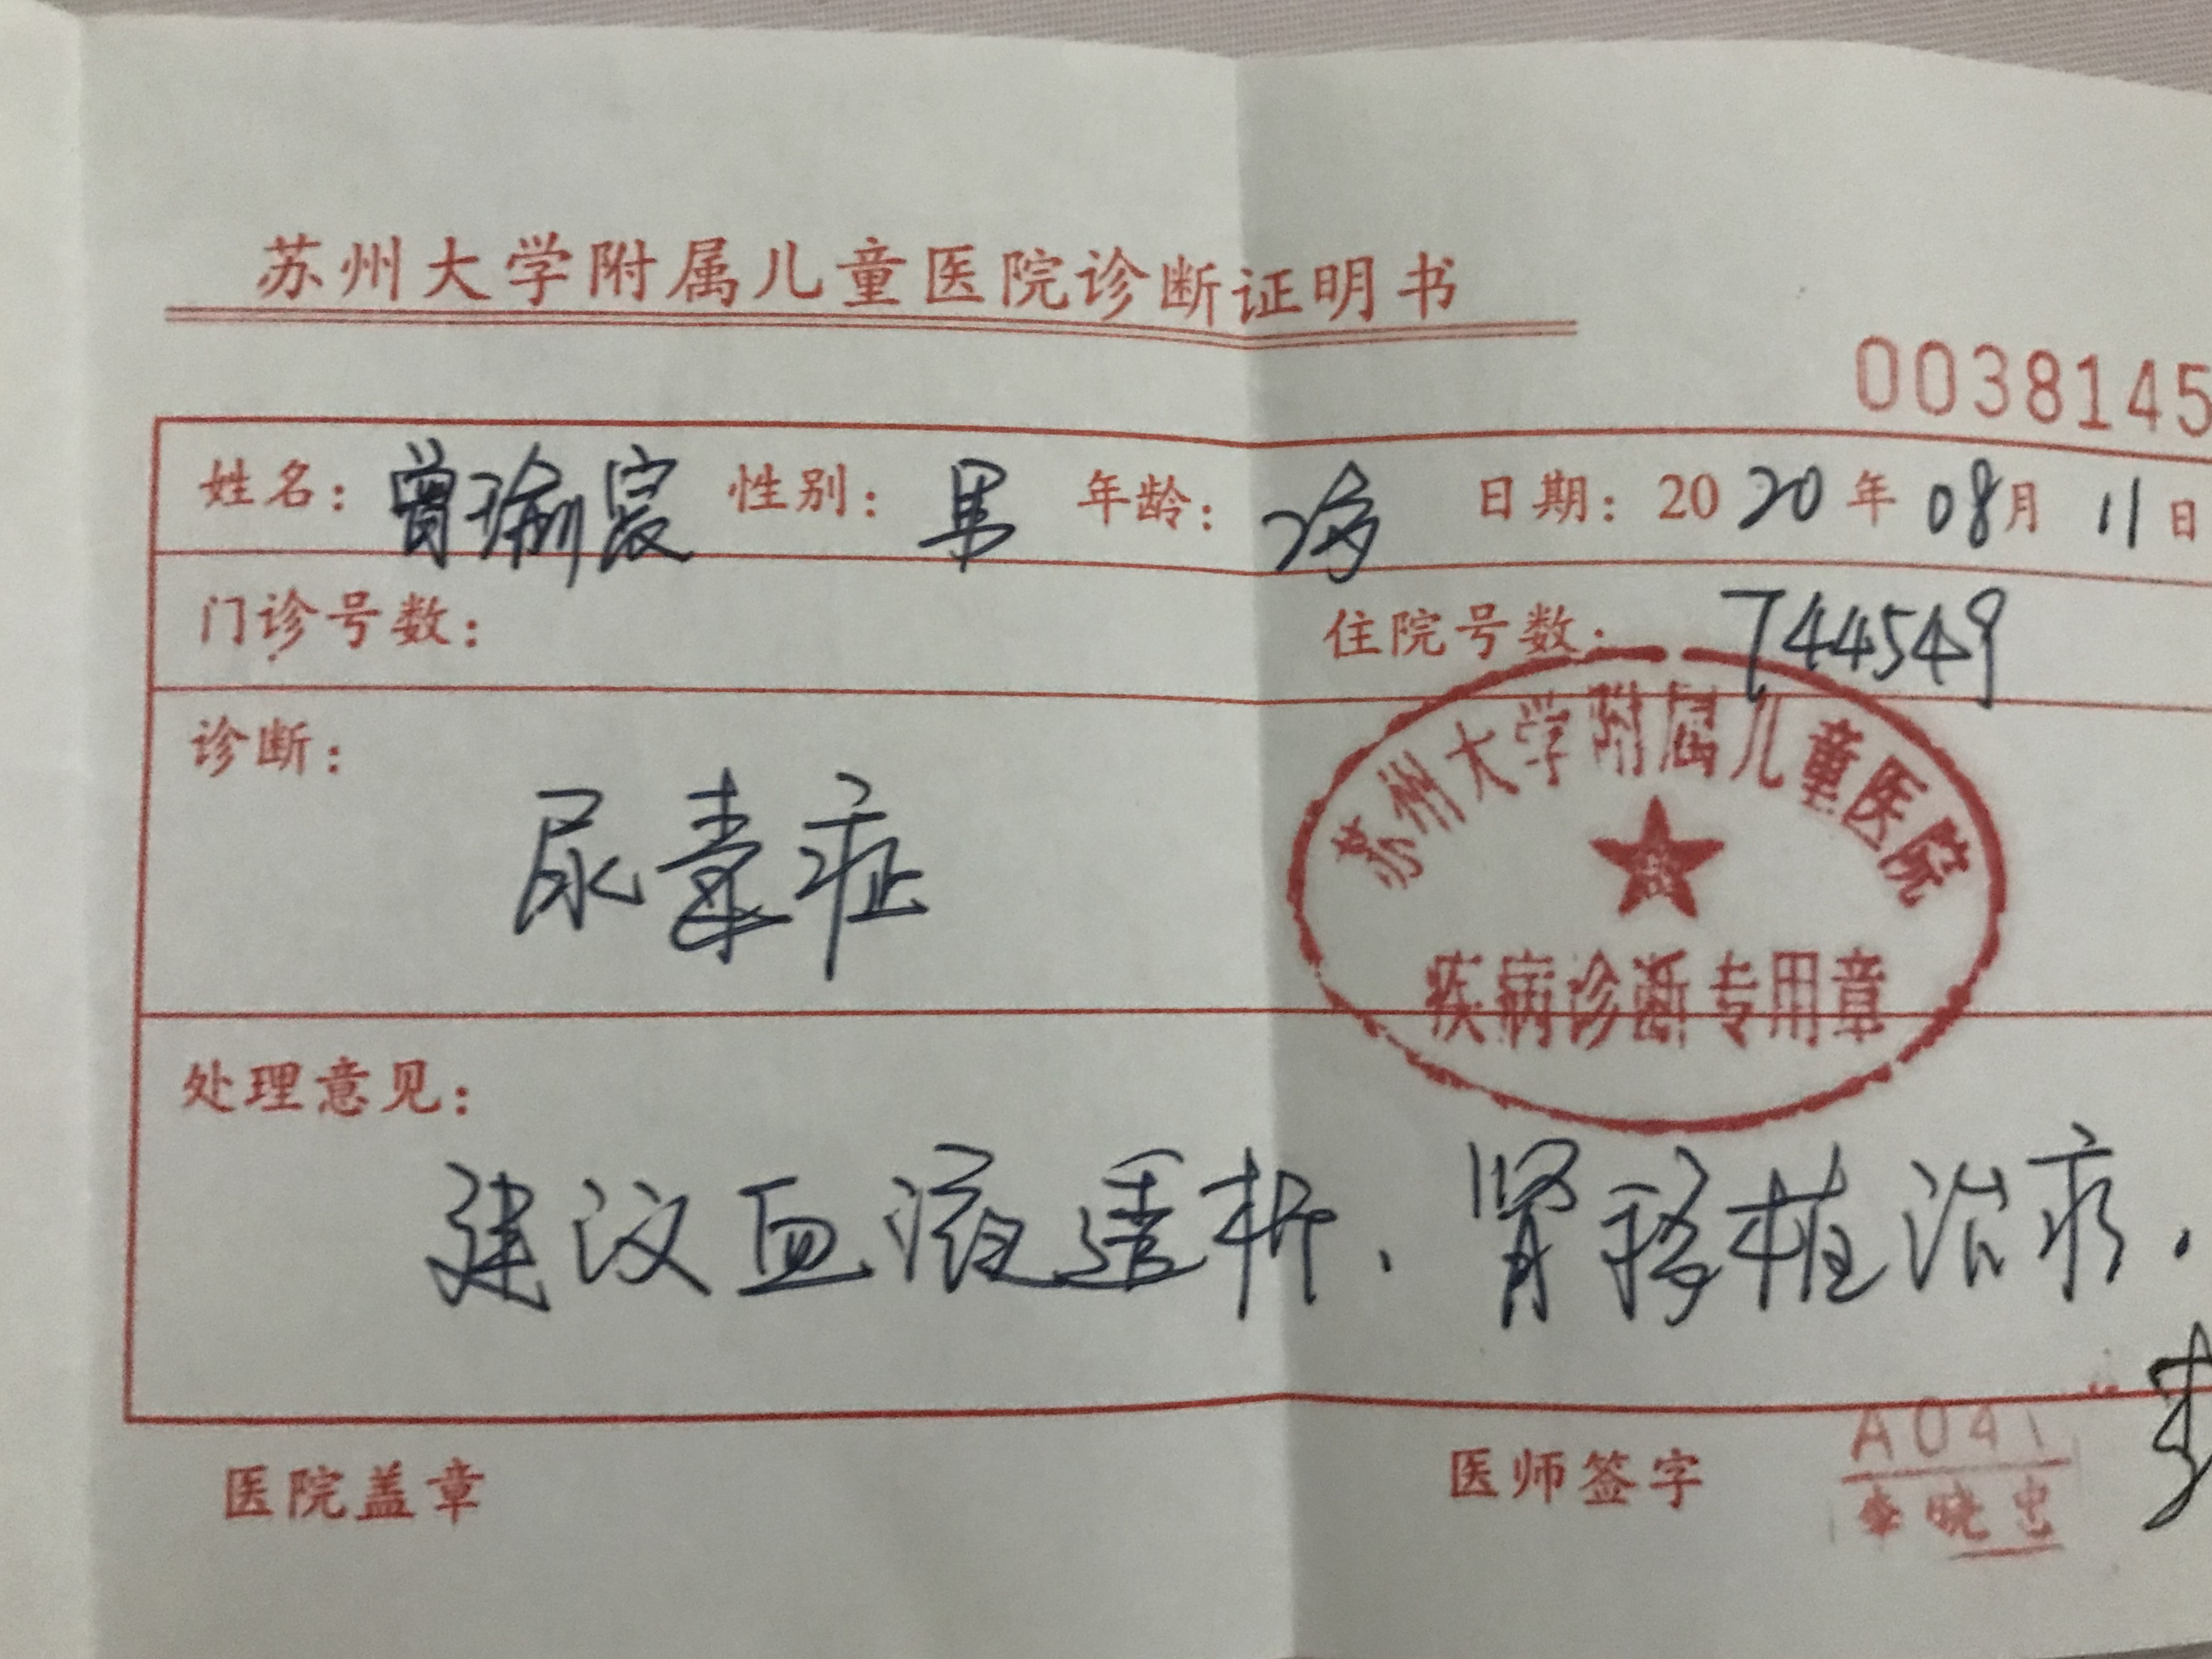 苏州大学附属儿童医院诊断证明书
0038145
姓名：曾瑜宸 性别：男 年龄：2岁 日期：2020年08月11日
门诊号数： 住院号数：744549
诊断：
尿毒症
苏州大学附属儿童医院
疾病诊断专用章
处理意见：
建议血液透析、肾移植治疗.
医院盖章 医师签字
A041
李晓忠